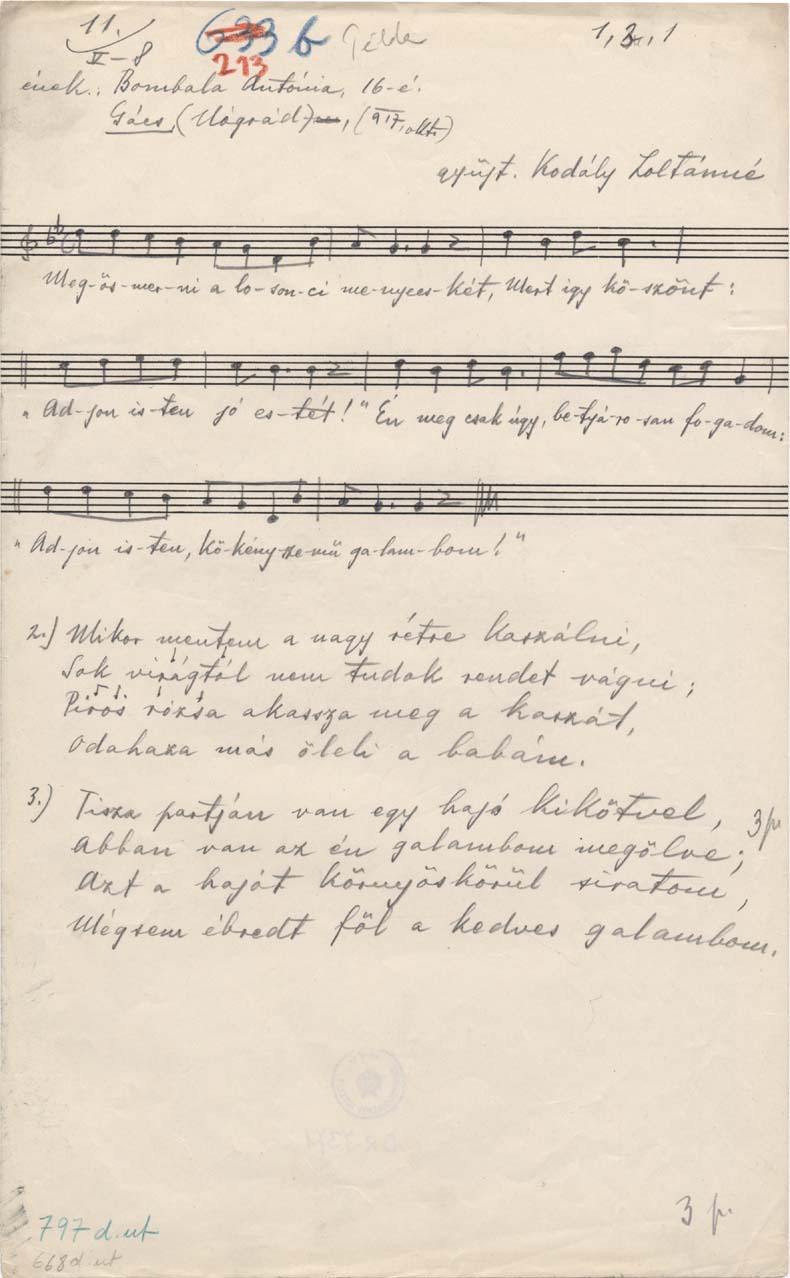 11.
V-8
633 b Példa
213
1, 3, 1
ének.: Bombala Antónia, 16-é.
Gács, (Nógrád), (917. okt.)
gyűjt. Kodály Zoltánné
Meg-ös-mer-ni a lo-son-ci me-nyecs-két, Mert így kö-szönt:
„Ad-jon is-ten jó es-tét!" Én meg csak úgy, be-tyá-ro-san fo-ga-dom:
„Ad-jon is-ten, kö-kény-sze-mű ga-lam-bom!"
2.) Mikor mentem a nagy rétre kaszálni,
Sok virágtól nem tudok rendet vágni;
Piros rózsa akassza meg a kaszát,
Odahaza más öleli a babám.
3.) Tisza partján van egy hajó kikötvel,
Abban van az én galambom megölve;
Azt a haját környöskörül siratom,
Mégsem ébredt föl a kedves galambom.
3 p.
3 p.
797 d. ut
668 d. ut